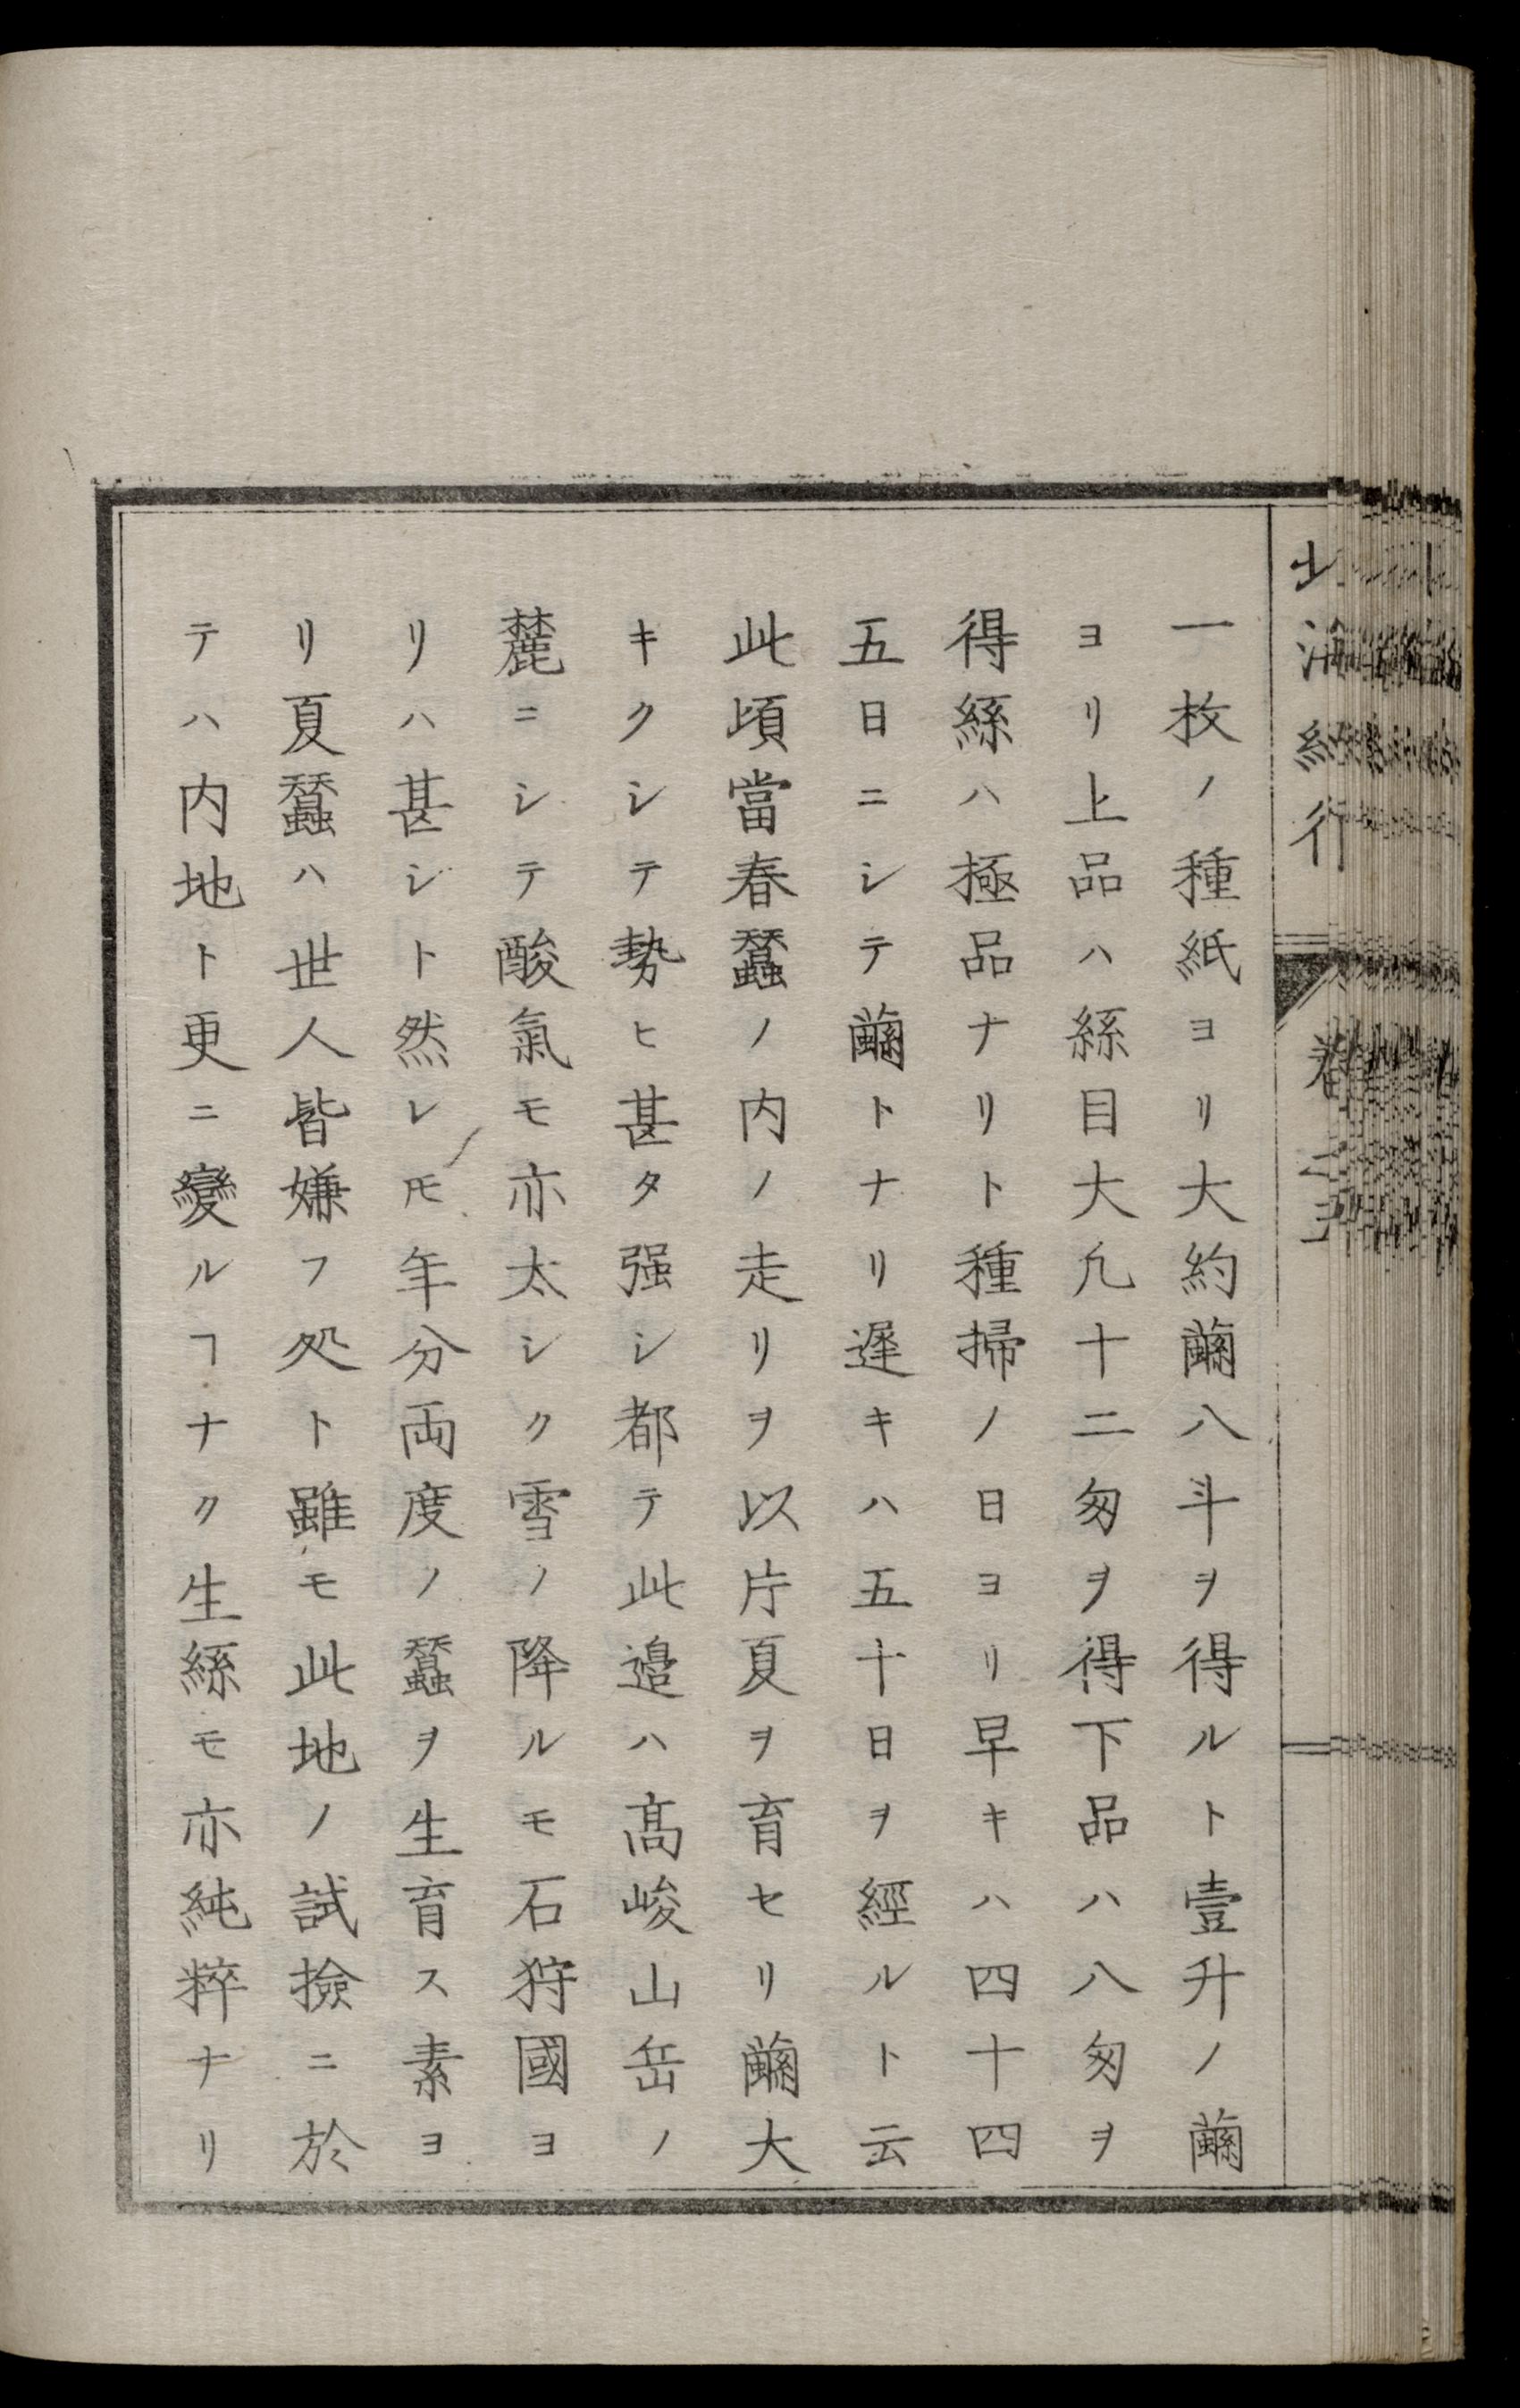 一枚ノ種紙ヨリ大約繭八斗ヲ得ルト壹升ノ繭
ヨリ上品ハ絲目大凢十二匁ヲ得下品ハ八匁ヲ
得絲ハ極品ナリト種掃ノ日ヨリ早キハ四十四
五日ニシテ繭トナリ遅キハ五十日ヲ經ルト云
此頃當春蠶ノ内ノ走リヲ以片夏ヲ育セリ繭大
キクシテ勢ヒ甚タ强シ都テ此邉ハ髙峻山岳ノ
麓ニシテ酸氣モ亦太シク雪ノ降ルモ石狩國ヨ
リハ甚シト然レ𪜈年分両度ノ蠶ヲ生育ス素ヨ
リ夏蠶ハ世人皆嫌フ处ト雖モ此地ノ試撿ニ於
テハ内地ト更ニ變ルヿナク生絲モ亦純粹ナリ